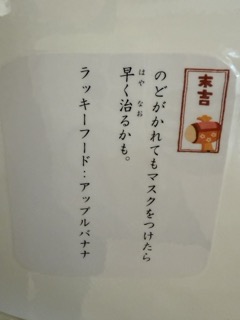 末吉
のどがかれてもマスクをつけたら
早く治るかも。
はや なお
ラッキーフード:アップルバナナ